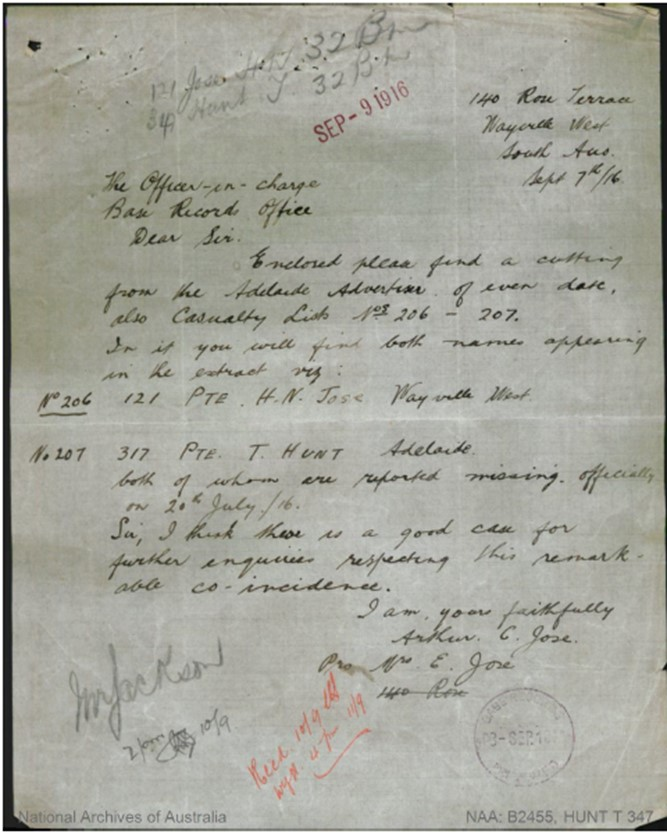 121 Jose H.N. 32 Bn
347 Hunt T. 32 Bn
SEP -9 1916
140 Rose Terrace
Wayville West
South Aus.
Sept 7th/16.
The Officer-in-charge
Base Records Office
Dear Sir.
Enclosed pleas find a cutting
from the Adelaide Advertiser of even date,
also Casualty Lists Nos 206 - 207.
In it you will find both names appearing
in the extract viz:
No 206 121 PTE. H.N. JOSE Wayville West.
No 207 317 PTE. T. HUNT Adelaide.
both of whom are reported missing. officially
on 20th July/16.
Sir, I think there is a good case for
further enquiries respecting this remark-
able co-incidence.
I am, yours faithfully
Arthur. C. Jose.
Pro Mrs E. Jose
140 Rose
Mr Jackson
10/9
Recd 10/9
11/9
National Archives of Australia
NAA: B2455, HUNT T 347